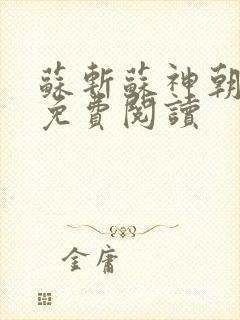 蘇斬蘇神朝
免費閱讀
金庸